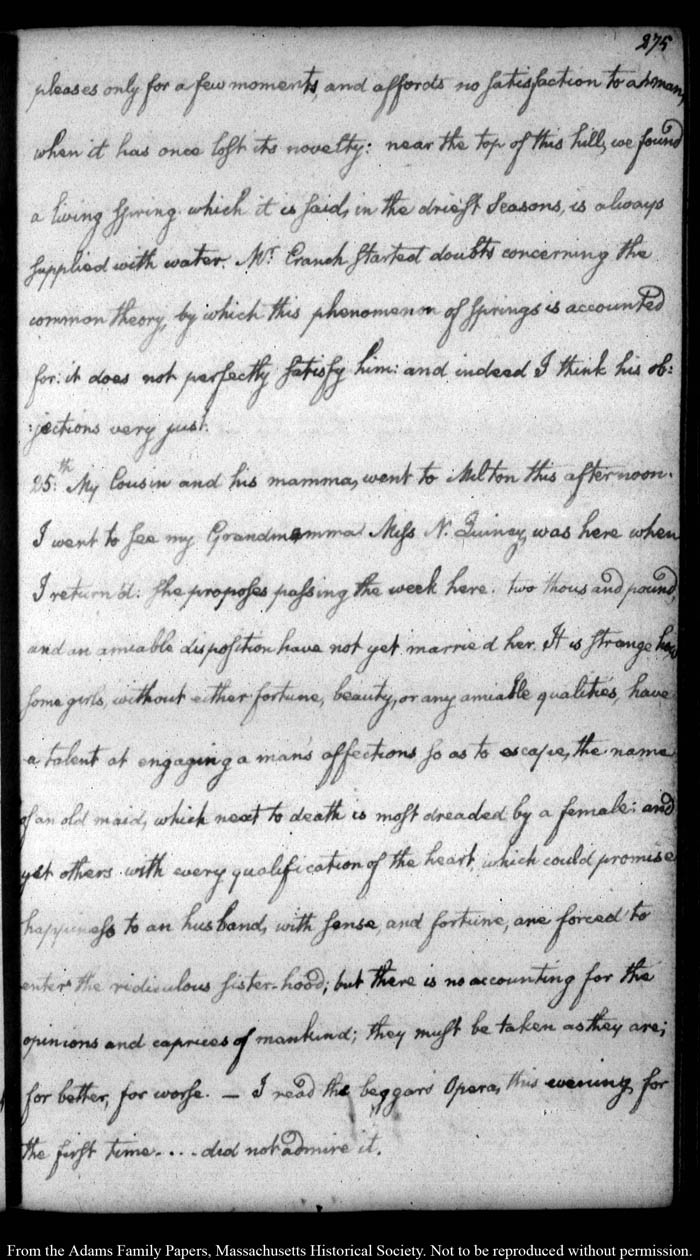 275
pleases only for a few moments, and affords no satisfaction to a man,
when it has once lost its novelty: near the top of this hill, we found
a living spring which it is said, in the driest seasons, is always
supplied with water. Mr. Cranch started doubts concerning the
common theory, by which this phenomenon of springs is accounted
for: it does not perfectly satisfy him: and indeed I think his ob:
:jections very just.
25.th My Cousin and his mamma, went to Milton this afternoon.
I went to see my Grandmamma Miss N. Quincy, was here when
I return'd: she proposes passing the week here. two thousand pound,
and an amiable disposition have not yet married her. It is strange how
some girls, without either fortune, beauty, or any amiable qualities, have
a talent at engaging a man's affections so as to escape, the name
of an old maid, which next to death is most dreaded by a female: and
yet others with every qualification of the heart, which could promise
happiness to an husband, with sense, and fortune, are forced to
enter the ridiculous sister-hood; but there is no accounting for the
opinions and caprices of mankind; they must be taken as they are;
for better, for worse. — I read the beggar's Opera, this evening, for
the first time.... did not admire it.
From the Adams Family Papers, Massachusetts Historical Society. Not to be reproduced without permission.